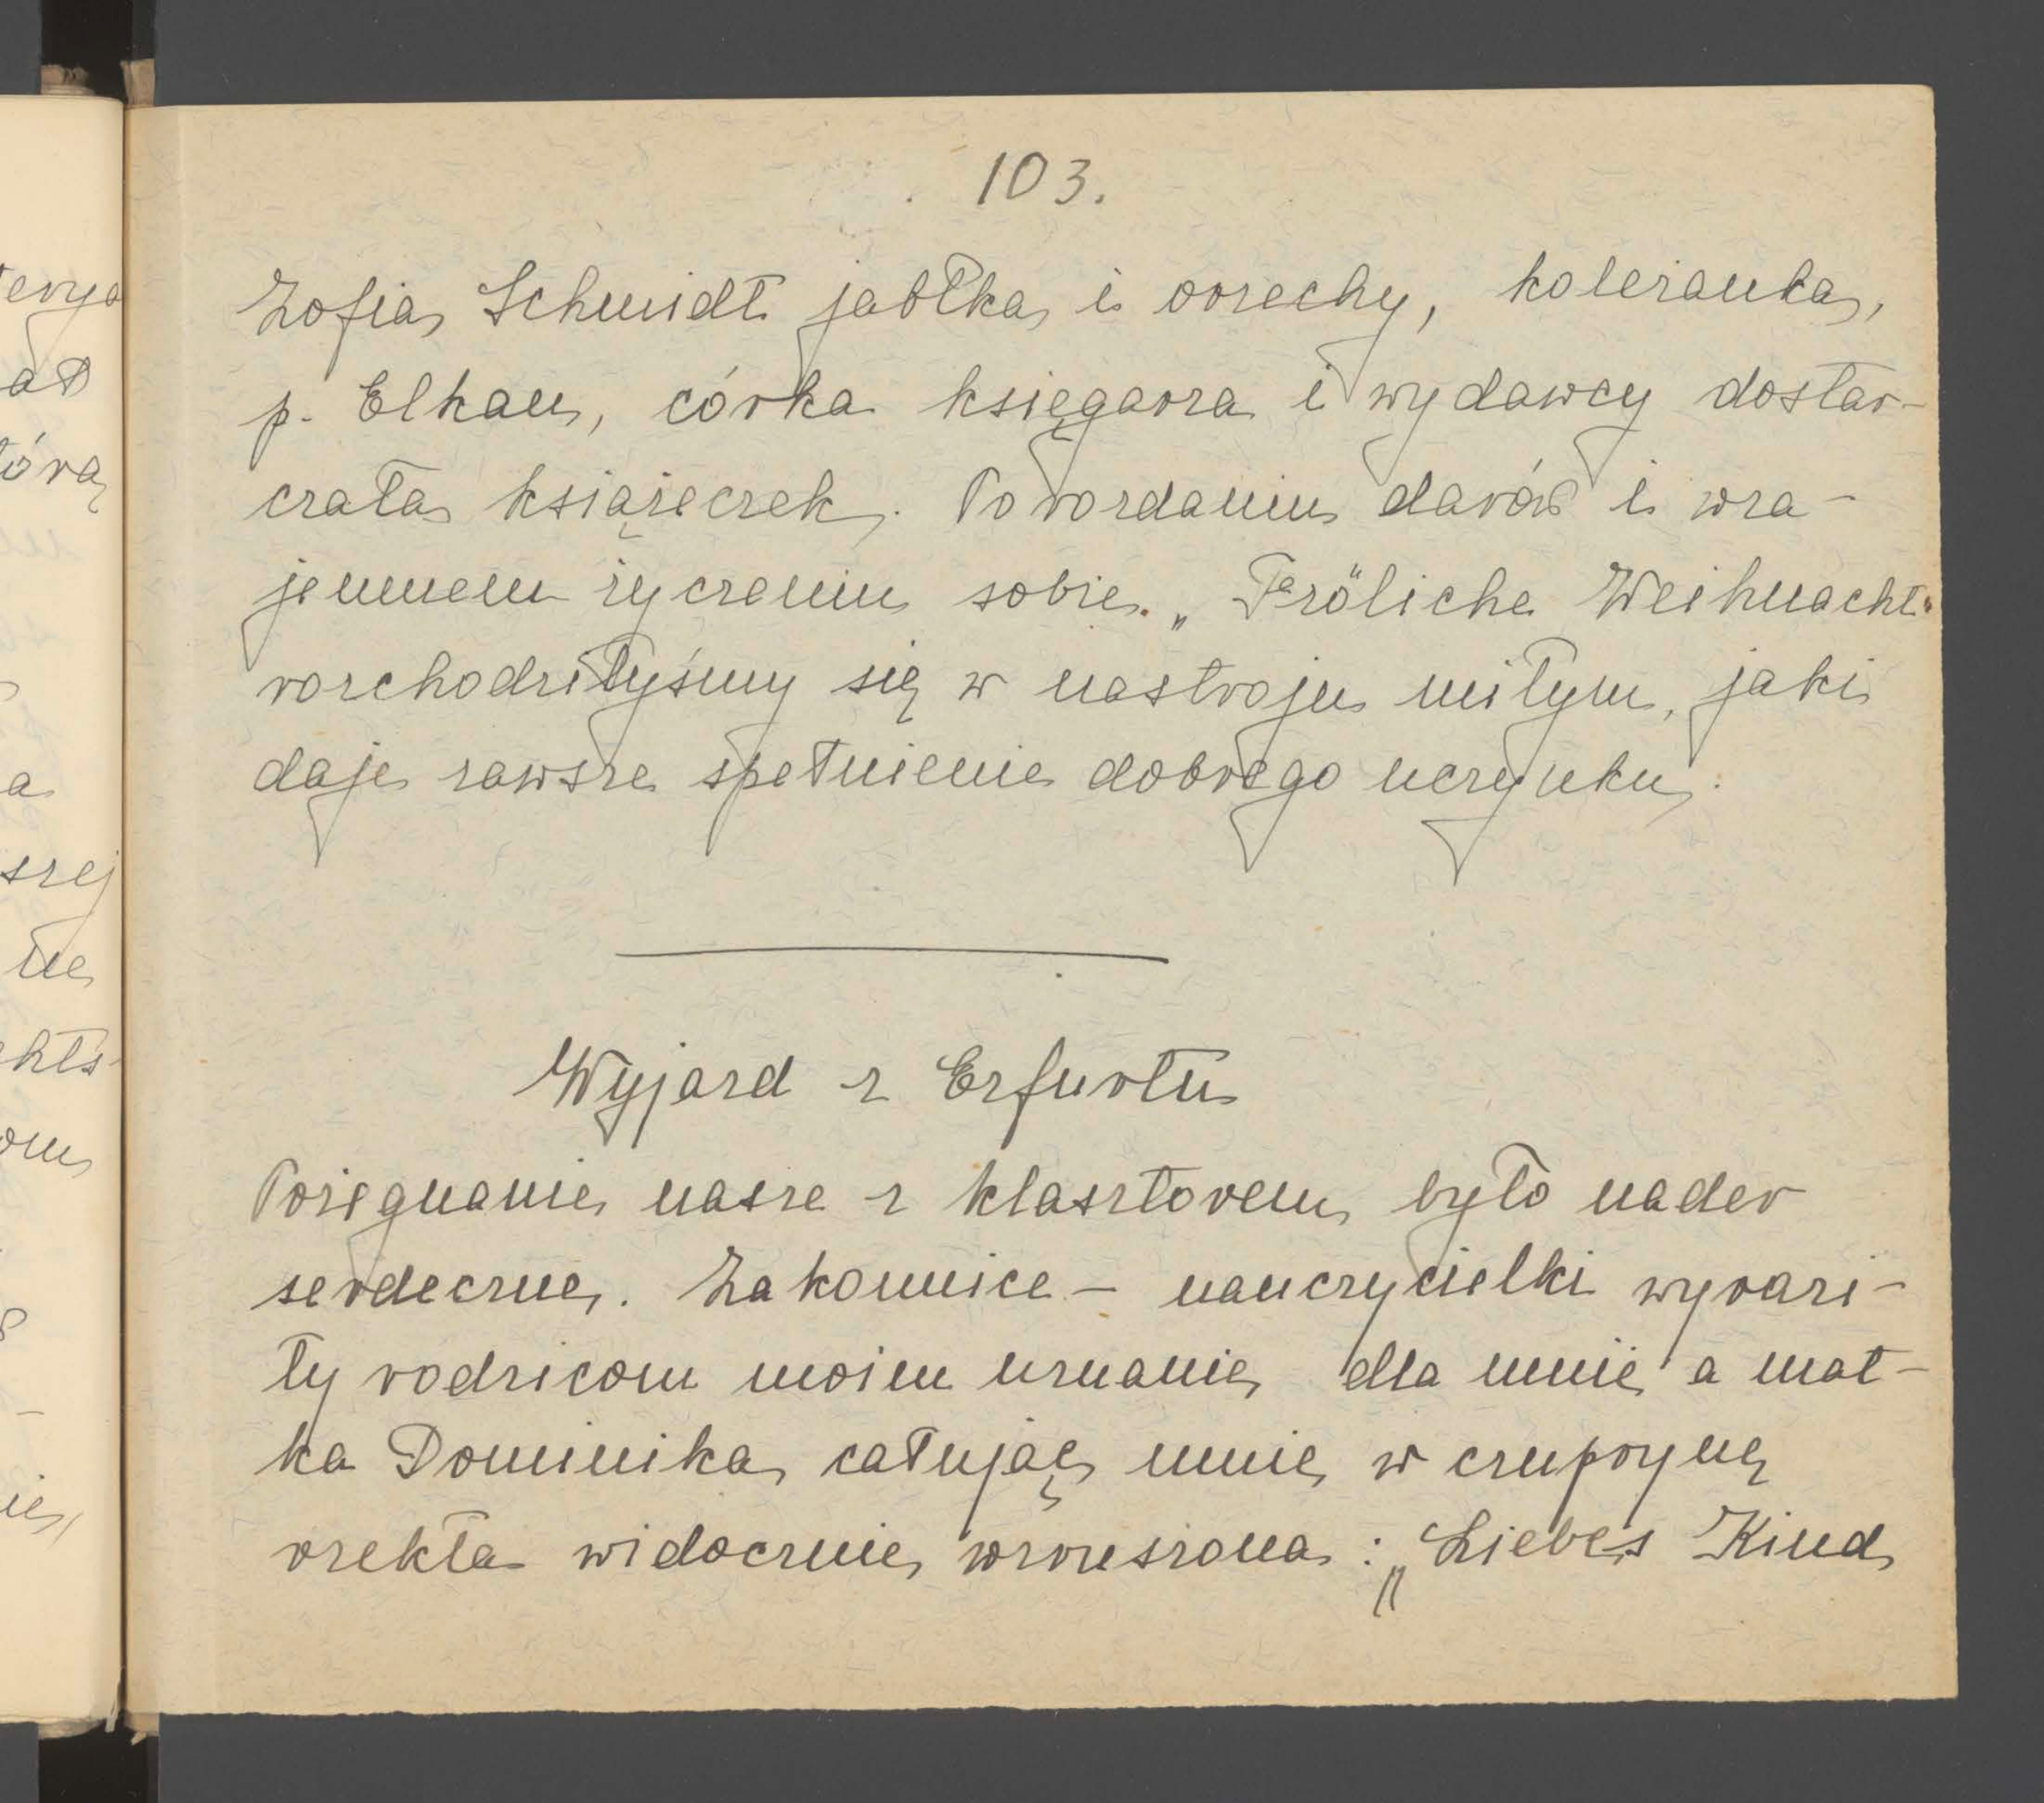 103.
Zofia Schmidt jabłka i orzechy, koleżanka,
p. Elkan, córka księgarza i wydawcy dostar-
czała książeczek. Po rozdaniu darów i wza-
jemnem życzeniu sobie „Fröliche Weihnacht"
rozchodziłyśmy się w nastroju miłym, jaki
daje zawsze spełnienie dobrego uczynku.
Wyjazd z Erfurtu
Pożegnanie nasze z klasztorem było nader
serdeczne. Zakonnice - nauczycielki wyrazi-
ły rodzicom moim uznanie dla mnie a mat-
ka Dominika, całując mnie w czuprynę
rzekła widocznie wzruszona: „Liebes Kind